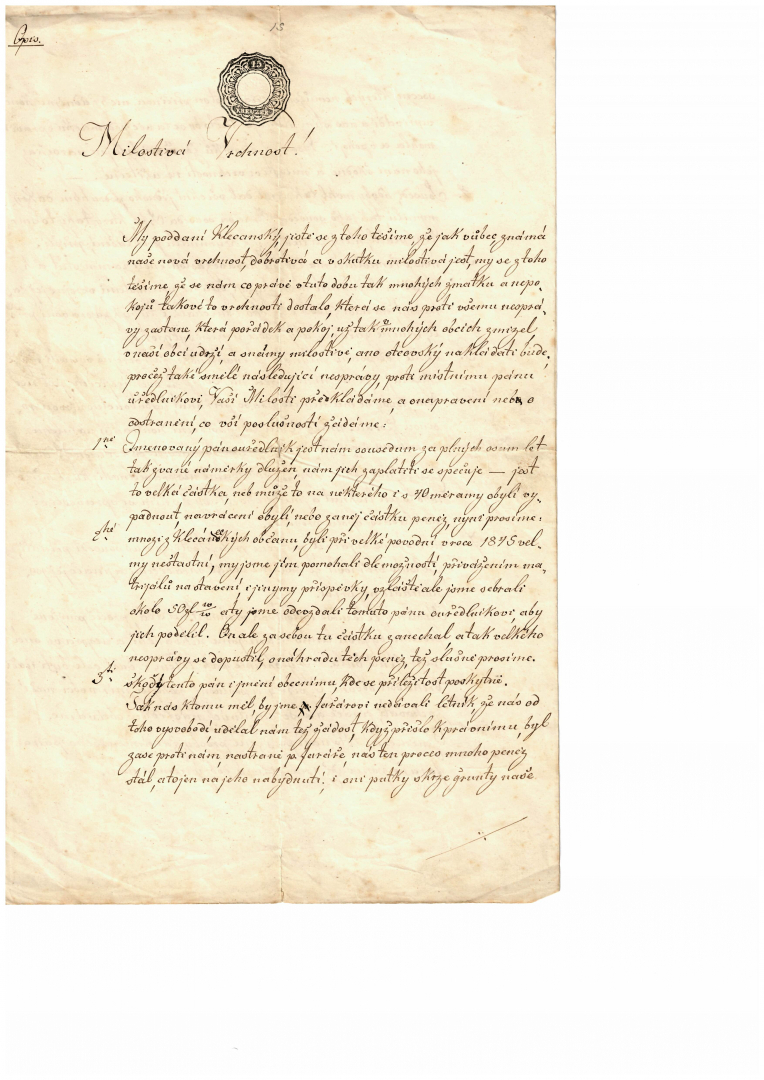 Opis.
15
15
Milostivá Vrchnost!
My poddaní Klecanský, jistě se z toho těšíme, že jak vůbec známá
naše nová vrchnost, dobrotivá a v skutku milostivá jest, my se z toho
těšíme, že se nám co právě v tuto dobu tak mnohých zmatku a nepo-
kojů takové to vrchnosti dostalo, která se nás proti všemu nesprá-
vy zastane, která pořádek a pokoj, už tak v mnohých obcich zmizel
v naší obci udrží, a snámy milostivě, ano otcovský nakládati bude,
pročež také smělé následující nesprávy, proti místnimu pánu
úředlnikovi, Vaší Milosti předkládáme, a o napravení nebo o
odstranění, co vší poslušností žádáme:
1ně Jmenovaný pán ouředlnjk jest nám sousedum za plných osum let
tak zvané náměrky dlužen, nám jich zaplatiti se spěčuje — jest
to velká částka, neb může to na některého i s 40 měramy obylí vy-
padnout, navrácení obylí, nebo za nej částku peněz, nyní prosíme:
2hé mnozí z Klecánských občanu, byli při velké povodni v roce 1845 vel-
my neštastní, my jsme jim pomohali dle možností, přivážením ma-
trijálů na stavení i jinymy příspěvky, vzláště ale jsme sebrali
okolo 50 zl a ty jsme odevzdali tomuto pánu ouředlnikovi, aby
jich podělil. On ale za sebou tu částku zanechal, a tak velkého
nesprávy se dopustil, o náhradu těch peněz, též slušně prosíme.
3tí škodj tento pán i jmění obecnimu, kde se příležitost poskytně.
Tak nás k tomu měl, by jme p. farářovi nedávali letnik, že nás od
toho vysvobodí, udělal nám též žádost, když přišlo k právnimu, byl
zase proti nám, na straně p. faráře, nás ten proces mnoho peněz
stál, a to jen na jeho nabýdnutí, i oni putky skrze grunty naše